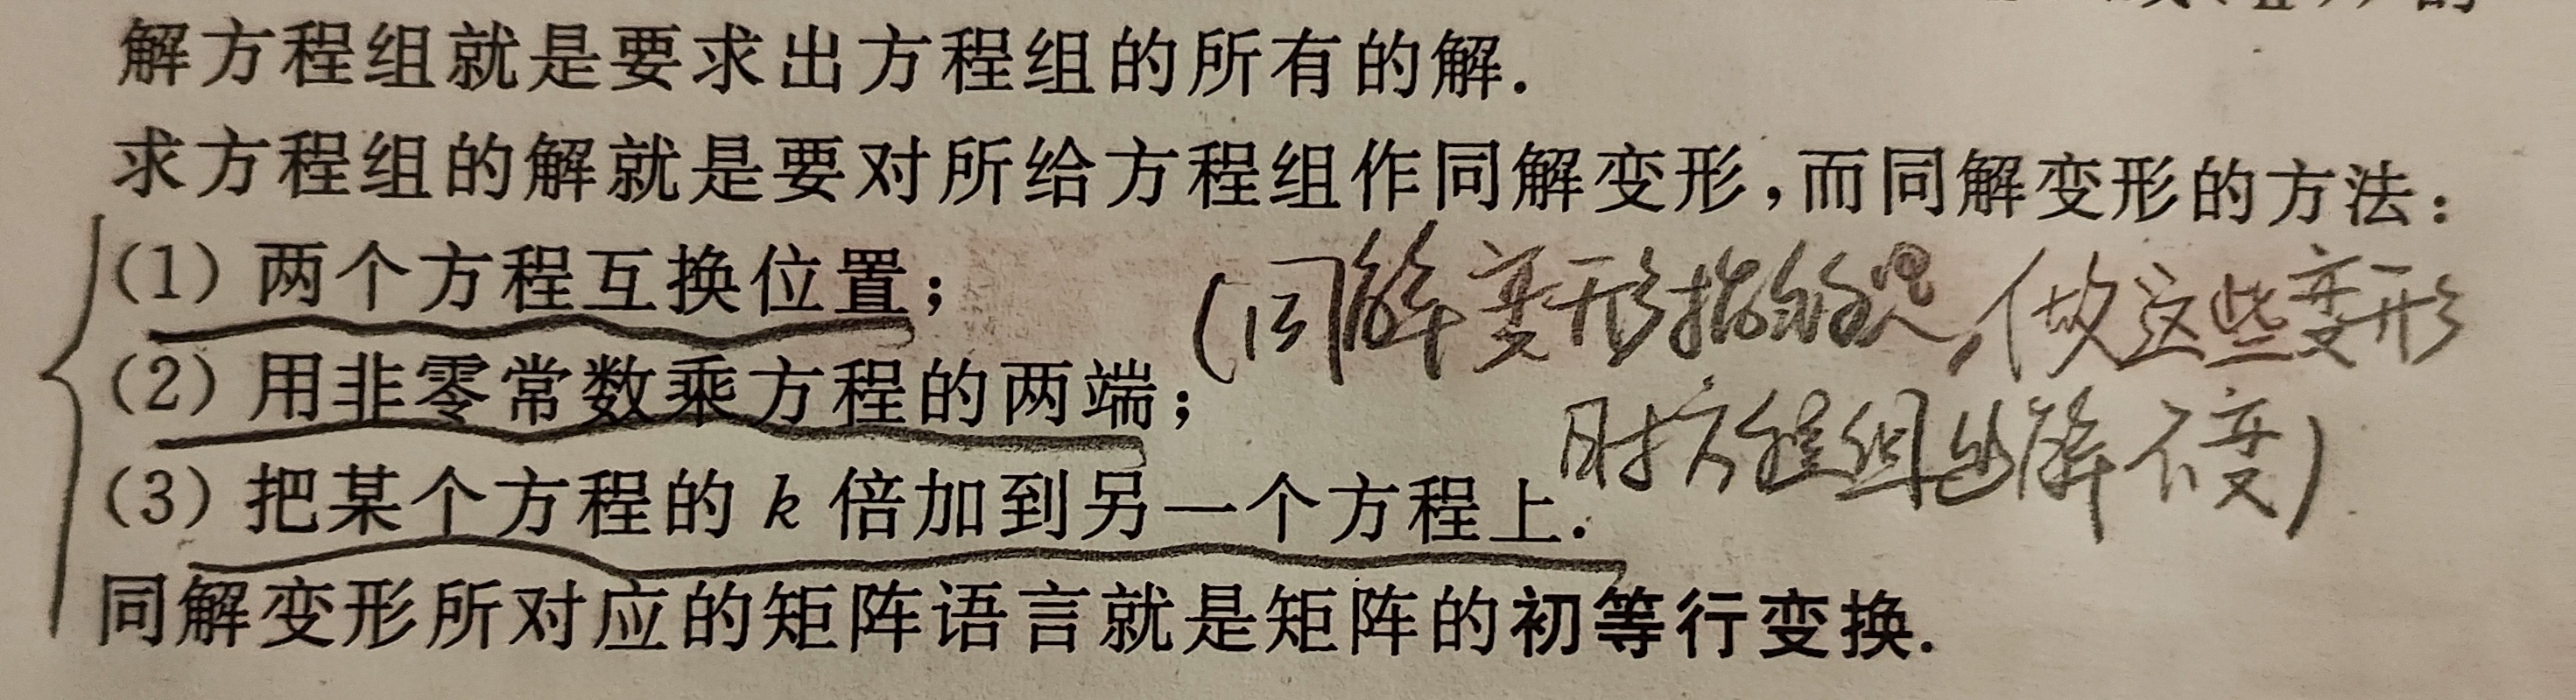 解方程组就是要求出方程组的所有的解.
求方程组的解就是要对所给方程组作同解变形,而同解变形的方法:
(1) 两个方程互换位置;
(同解变形指的是,做这些变形
(2) 用非零常数乘方程的两端;
时方程组的解不变)
(3) 把某个方程的 k 倍加到另一个方程上.
同解变形所对应的矩阵语言就是矩阵的初等行变换.